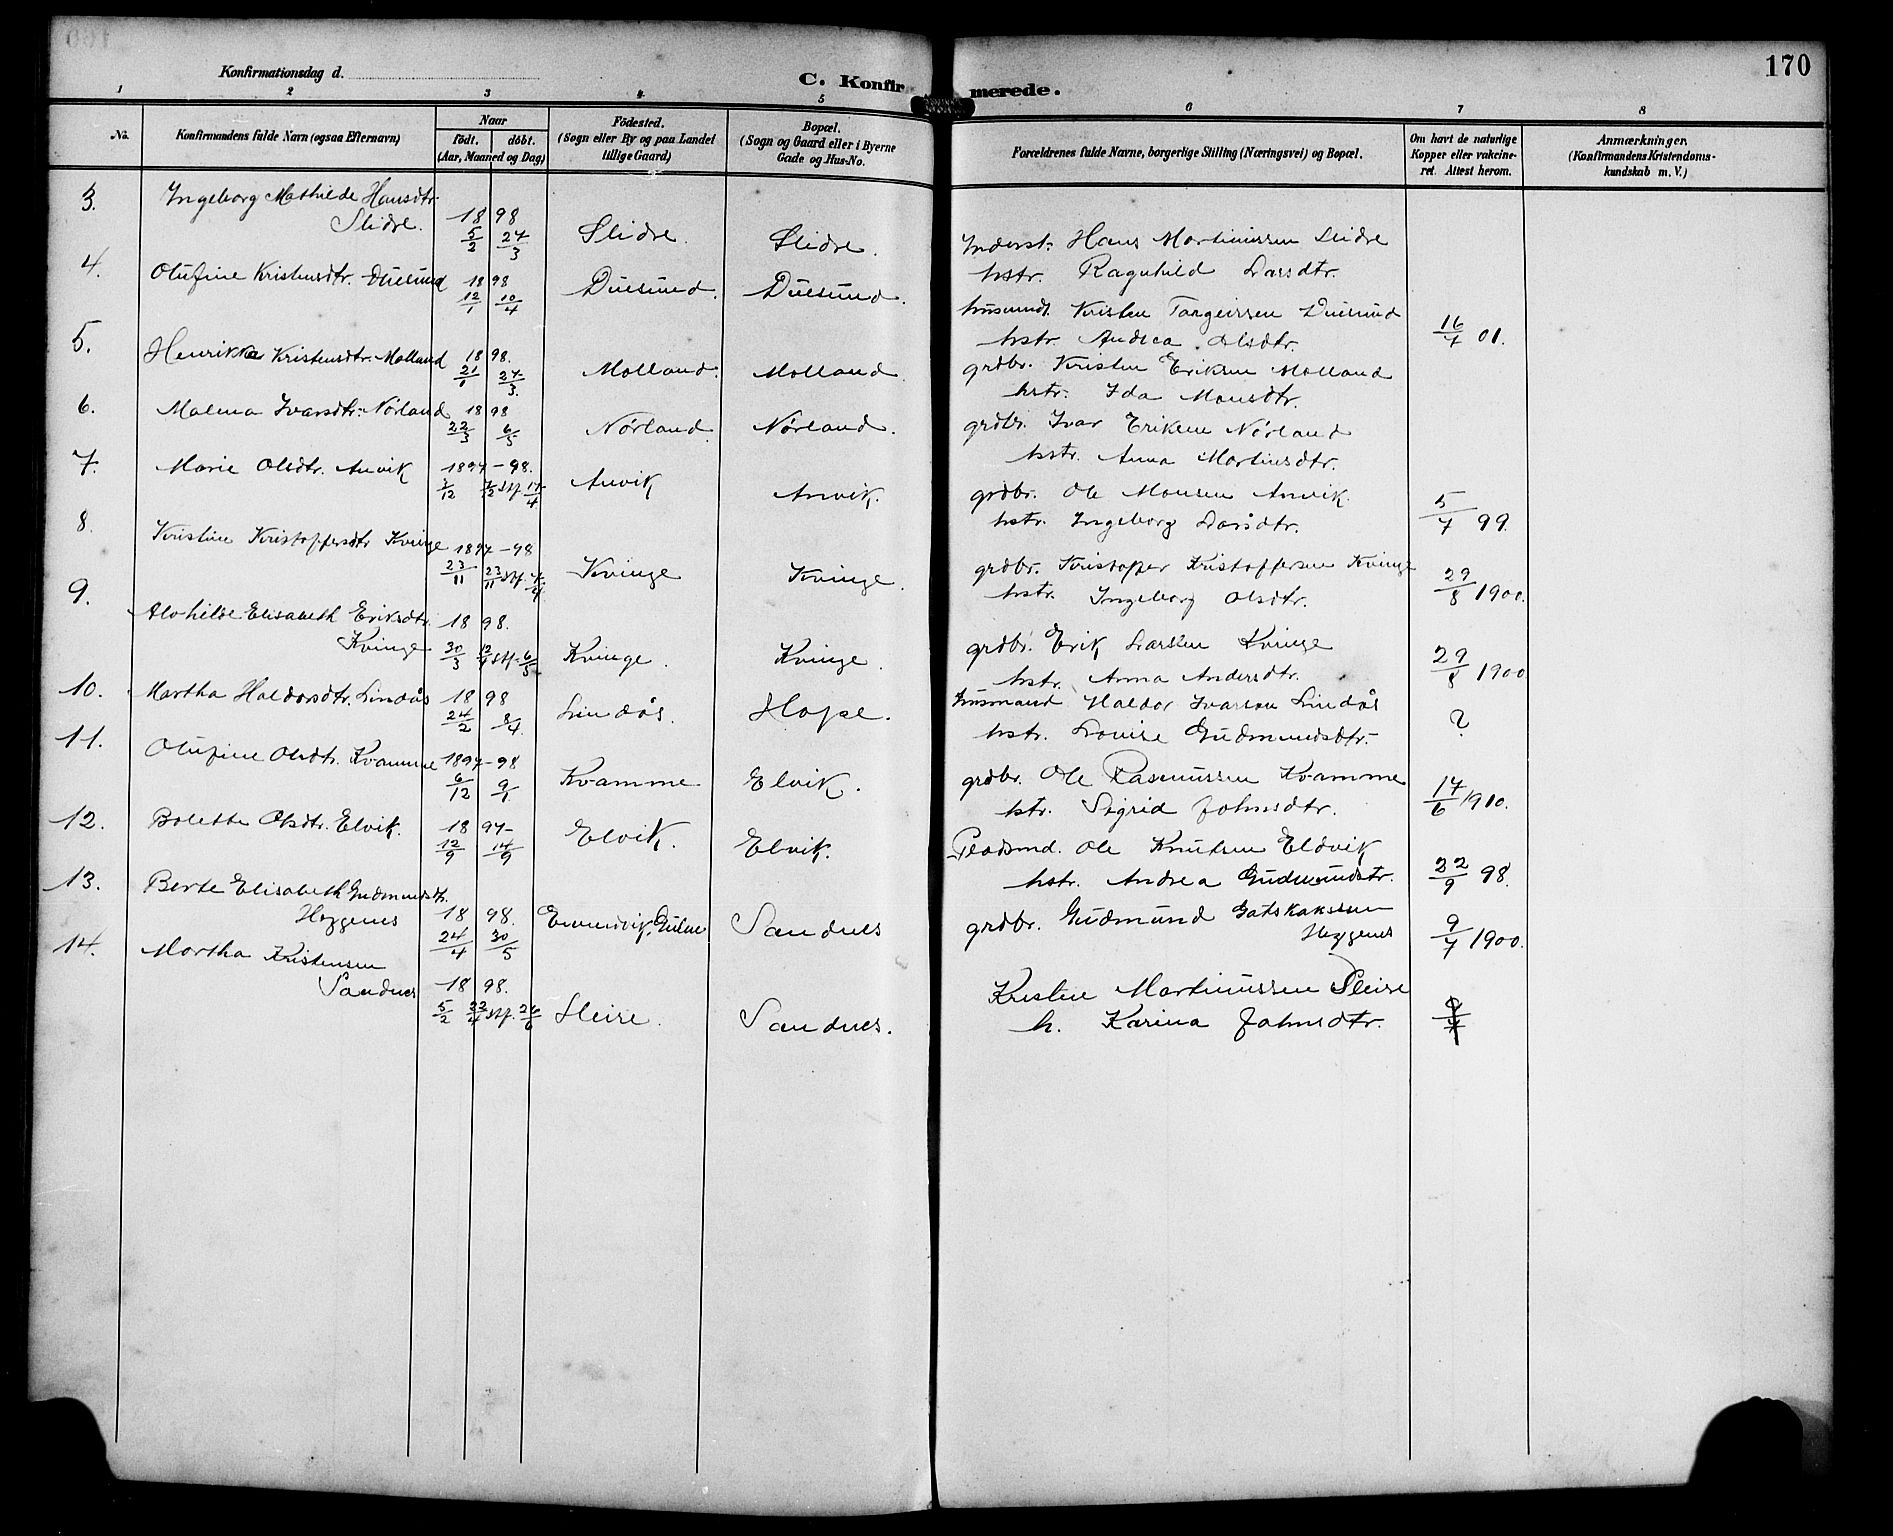 170
Konfirmationsdag d.
C. Konfirmerede.
1 2 3 4 5 6 7 8
No.
Konfirmandens fulde Navn (ogsaa Efternavn)
Naar
födt. döbt.
(Aar, Maaned og Dag)
Födested.
(Sogn eller By og paa Landet
tillige Gaard)
Bopæl.
(Sogn og Gaard eller i Byerne
Gade og Hus-No.
Forældrenes fulde Navne, borgerlige Stilling (Næringsvei) og Bopæl.
Om havt de naturlige
Kopper eller vakcine-
ret. Attest herom.
Anmærkninger.
(Konfirmandens Kristendoms-
kundskab m. V.)
3. Ingeborg Mathilde Hansdtr.
Slidre. 18 98
5/2 27/3 Slidre. Slidre.
Inderst. Hans Martinussen Slidre
hstr. Ragnhild Larsdtr.
4. Olufine Kristensdtr. Duesund 18 98
12/1 10/4 Duesund. Duesund.
husmand. Kristen Torgeirssen Duesund
hstr. Andrea Olsdtr. 16/7 01.
5. Henrikka Kristensdtr. Molland 18 98.
21/1 27/3. Molland. Molland.
grdbr. Kristen Eriksen Molland
hstr. Ida Monsdtr.
6. Malena Ivarsdtr. Nörland 18 98
22/3 6/5 Nörland. Nörland.
grdbr. Ivar Eriksen Nörland
hstr. Anna Martinsdtr.
7. Marie Olsdtr. Anvik 1897-98.
stf. 17/4 Anvik Anvik.
grdbr. Ole Monsen Anvik.
hstr. Ingeborg Larsdtr. 5/7 99.
8. Kristine Kristoffersdtr Kvinge 1897-98
23/11 23/11 stf. Kvinge Kvinge.
grdbr. Kristoffer Kristoffersen Kvinge
hstr. Ingeborg Olsdtr. 29/8 1900.
9. Alvhilde Elisabeth Eriksdtr.
Kvinge 18 98.
30/3 stf. 6/5 Kvinge. Kvinge.
grdbr. Erik Larssen Kvinge
hstr. Anna Andersdtr. 29/8 1900
10. Martha Haldorsdtr. Lindås 18 98
24/2 8/4. Lindås. Hope.
husmand Haldor Ivarson Lindås
hstr. Lovise Gudmundsdtr. ?
11. Olufine Olsdtr. Kvamme 1897-98
6/12 9/1 Kvamme Elvik.
grdbr. Ole Rasmussen Kvamme
hstr. Sigrid Johnsdtr. 17/6 1910.
12. Bolette Olsdtr. Elvik. 18 97
12/9 14/9 Elvik. Elvik.
Pladsmd. Ole Knutsen Eldvik
hstr. Andrea Gudmundstr. 22/9 98.
13. Berte Elisabeth Gudmundsdtr.
Heggenes 18 98.
24/4 30/5 Gulen Sandnes
grdbr. Gudmund
Heggenes 9/7 1900.
14. Martha Kristensen
Sandnes 18 98.
5/2 stf. 26/6 Sleire. Sandnes.
Kristen Martinussen Sleire
h. Karina Johnsdtr.